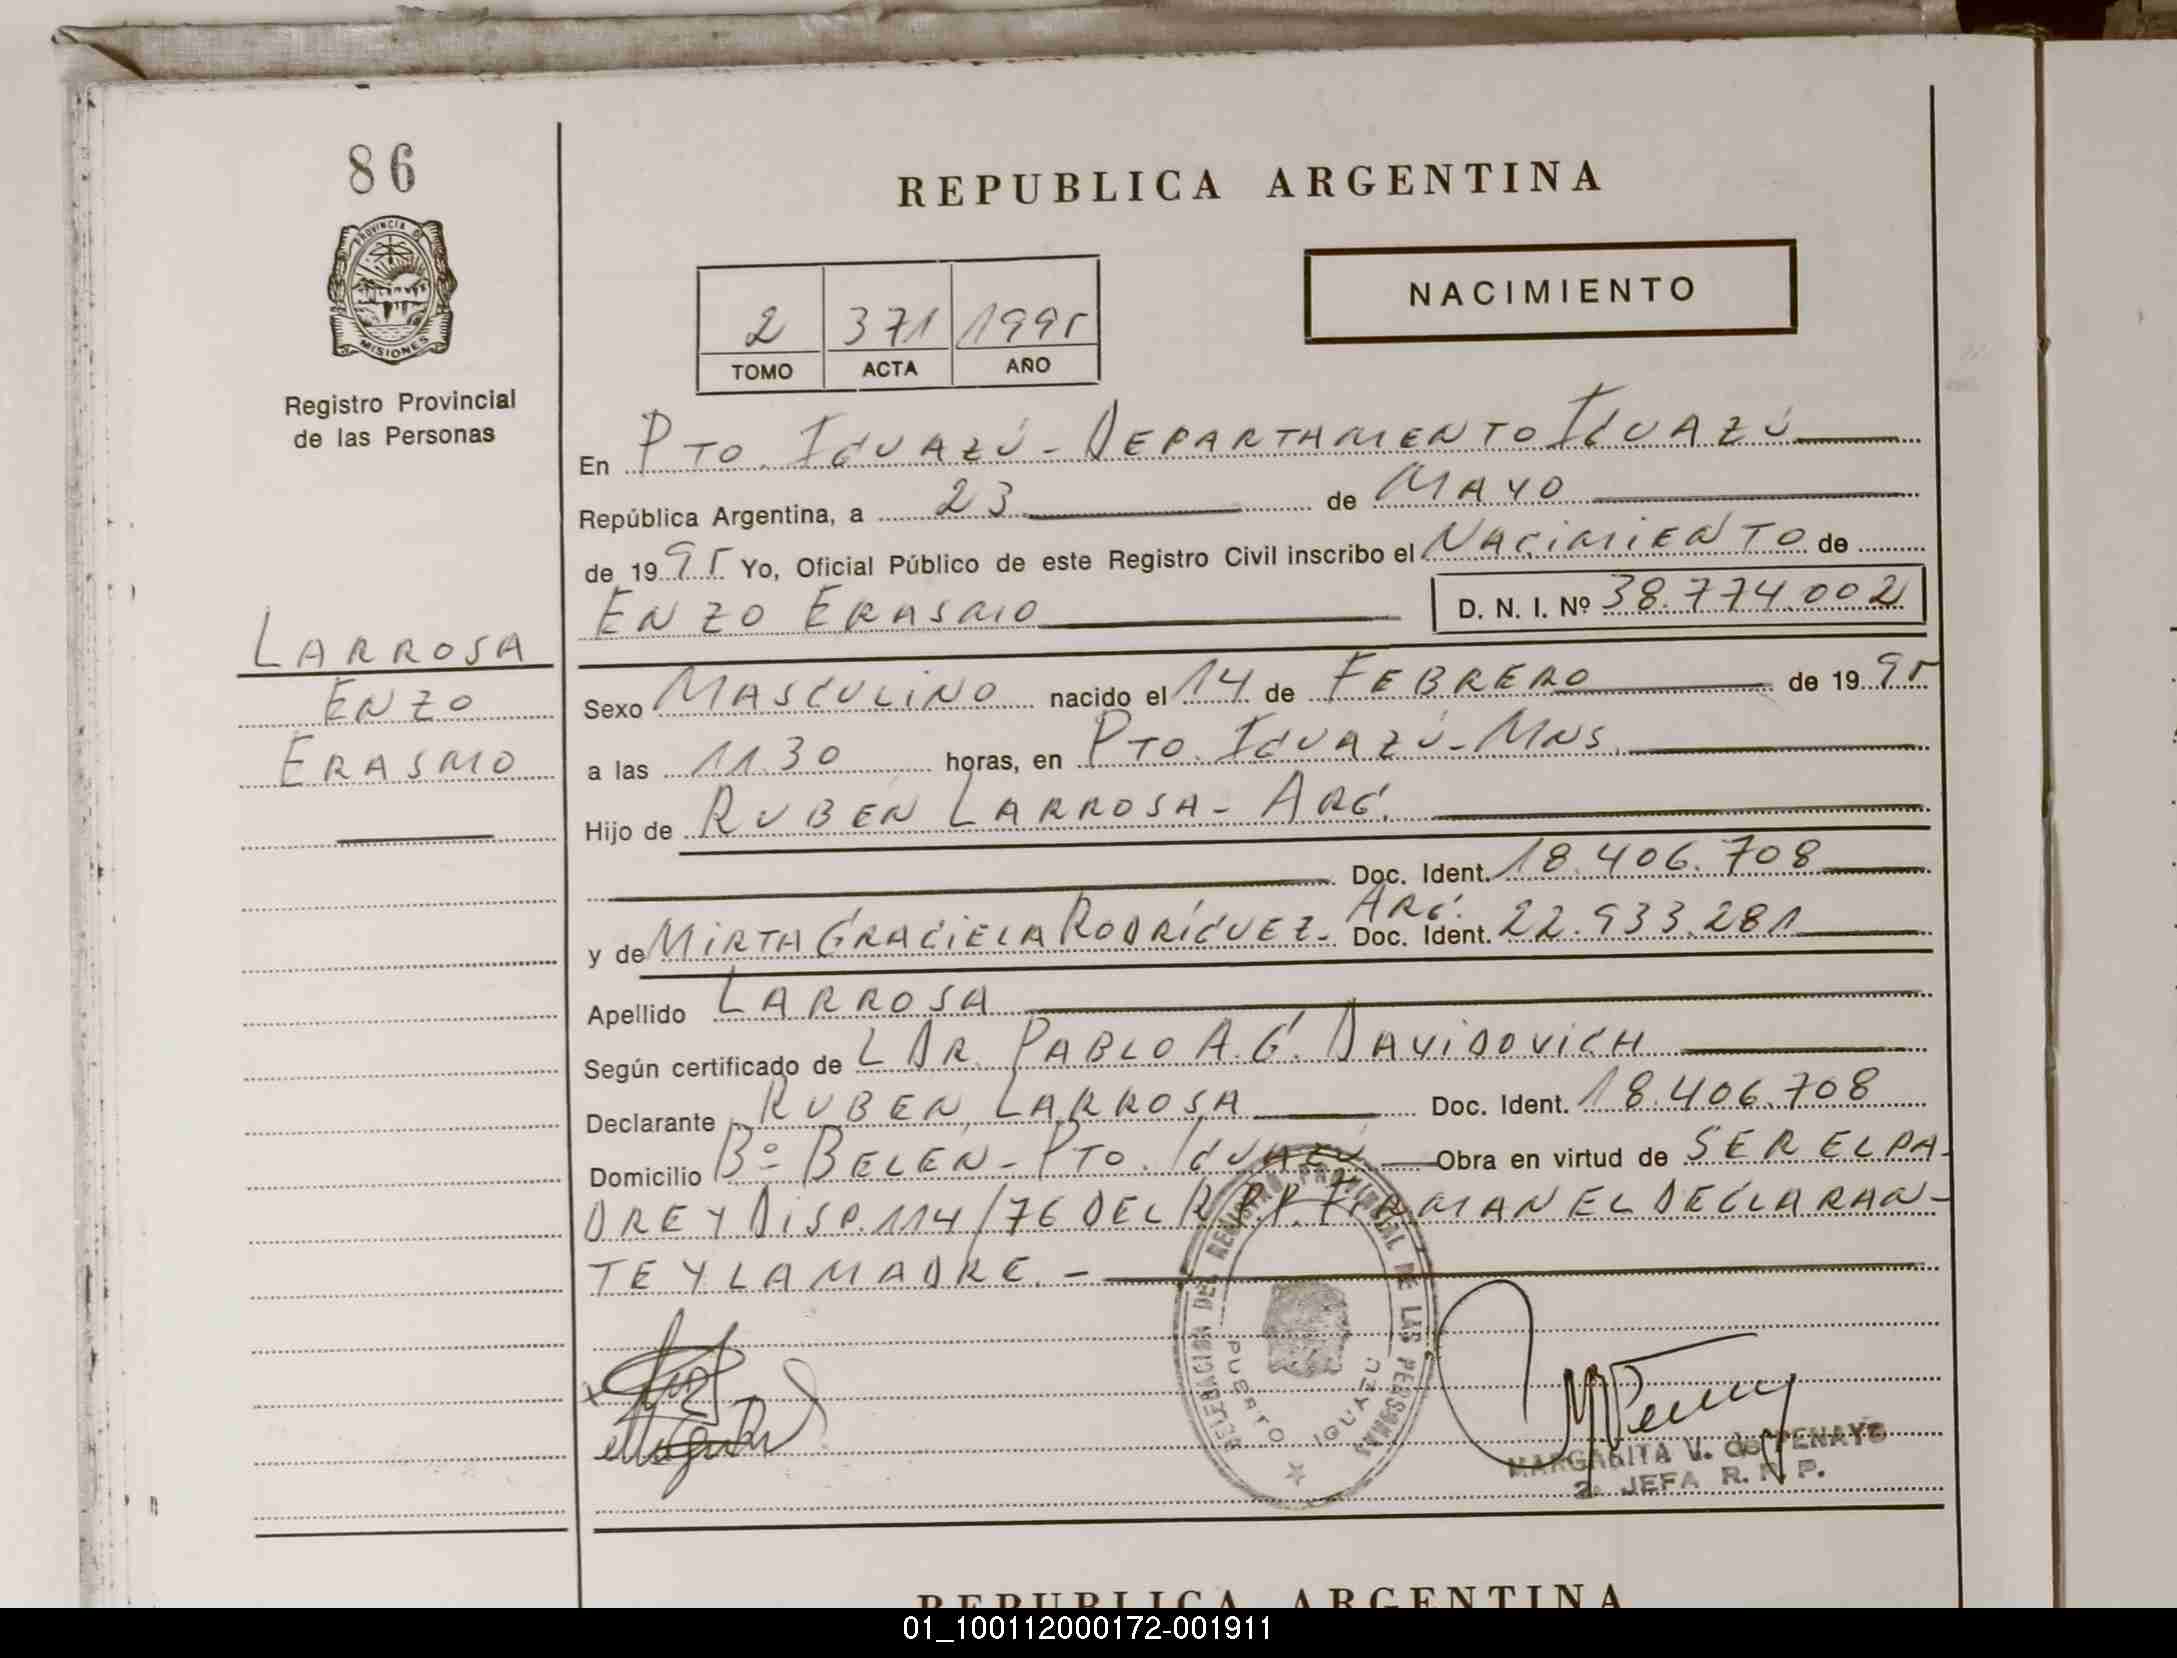 86
PROVINCIA DE
MISIONES
Registro Provincial
de las Personas
LARROSA
ENZO
ERASMO
REPUBLICA ARGENTINA
2 371 1995
TOMO ACTA AÑO
NACIMIENTO
En PTO. IGUAZÚ - DEPARTAMENTO IGUAZÚ
República Argentina, a 23 de MAYO
de 1995 Yo, Oficial Público de este Registro Civil inscribo el NACIMIENTO de
ENZO ERASMO D. N. I. Nº 38.774.002
Sexo MASCULINO nacido el 14 de FEBRERO de 1995
a las 11.30 horas, en PTO. IGUAZÚ - MNS.
Hijo de RUBEN LARROSA - ARG.
Doc. Ident. 18.406.708
ARG.
y de MIRTA GRACIELA RODRÍGUEZ - Doc. Ident. 22.933.281
Apellido LARROSA
Según certificado de L DR. PABLO A. G. DAVIDOVICH
Declarante RUBEN LARROSA Doc. Ident. 18.406.708
Domicilio Bº BELEN - PTO. IGUAZÚ Obra en virtud de SER EL PA-
DRE Y DISP. 114/76 DEL R.P.P. FIRMAN EL DECLARAN-
TE Y LA MADRE. -
DELEGACION DEL REGISTRO PROVINCIAL DE LAS PERSONAS
PUERTO IGUAZU
MARGARITA V. de PENAYO
2. JEFA R. P. P.
REPUBLICA ARGENTINA
01_100112000172-001911